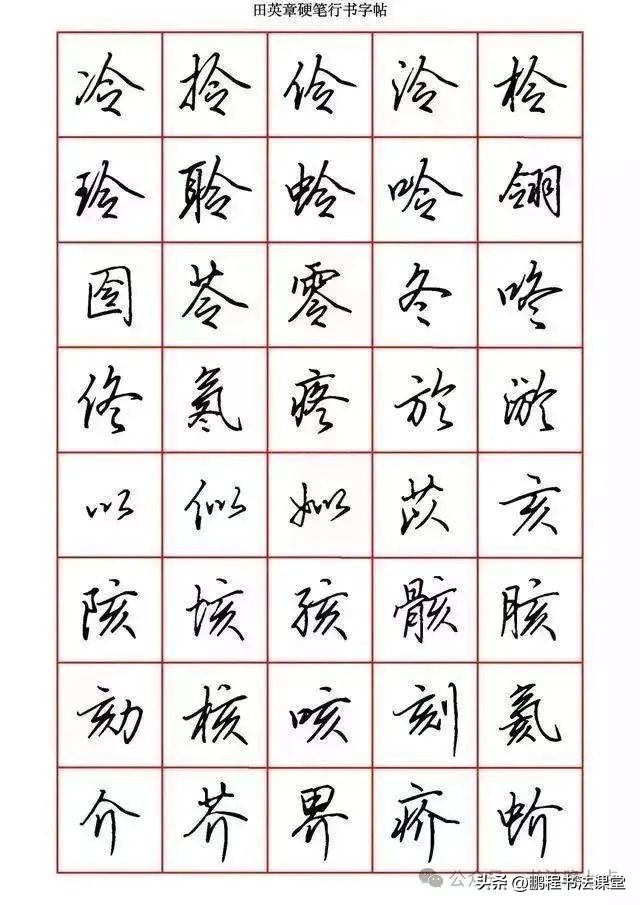 田英章硬笔行书字帖
冷 拎 伶 泠 柃
玲 聆 蛉 呤 翎
囹 苓 零 冬 咚
佟 氡 疼 於 淤
以 似 姒 苡 亥
陔 垓 孩 骸 胲
劾 核 咳 刻 氦
介 芥 界 疥 蚧
头条 @鹏程书法课堂